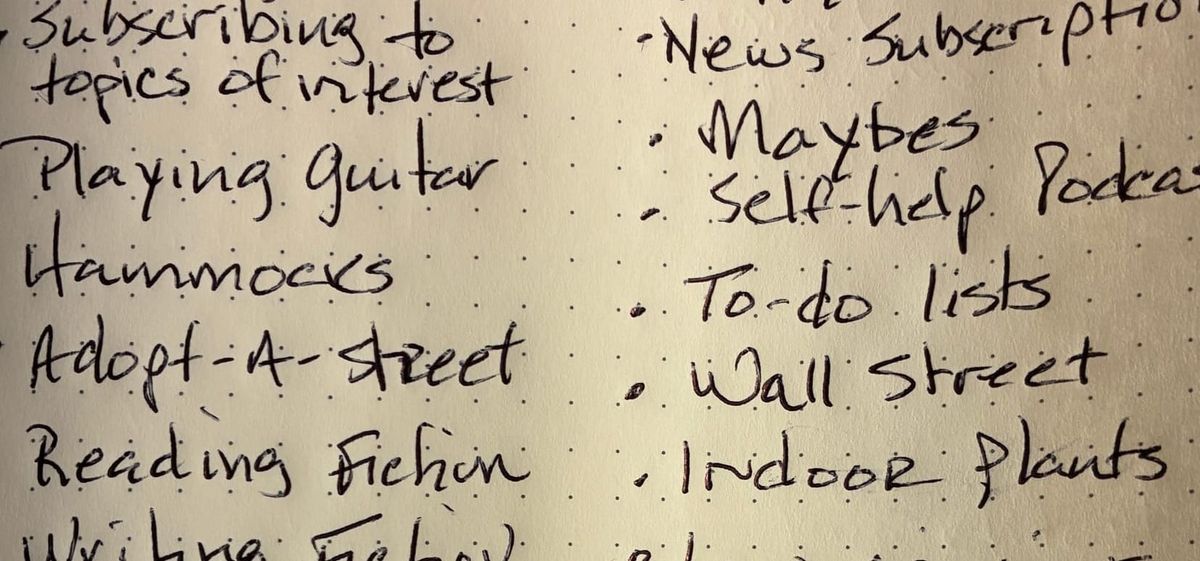 Subscribing to
topics of interest
Playing guitar
Hammocks
Adopt-A-Street
Reading Fiction
Writing Fiction
News Subscriptio
Maybes
Self-help Podca
To-do lists
Wall Street
Indoor plants